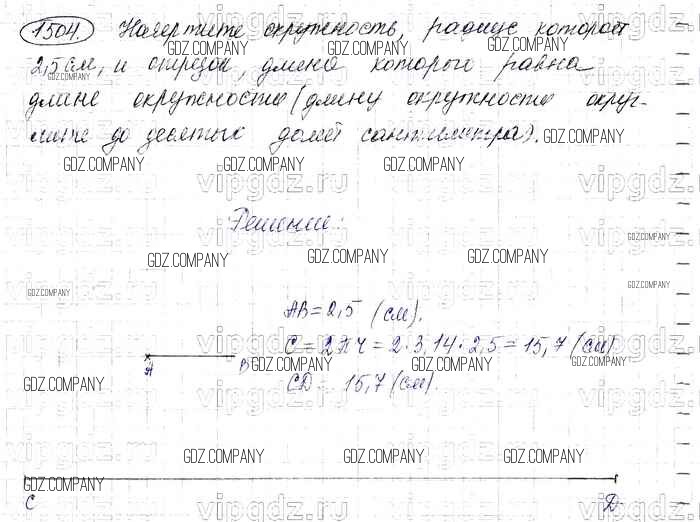 1504. Начертите окружность, радиус которой
2,5 см, и отрезок, длина которого равна
длине окружности (длину окружности округ-
лите до десятых долей сантиметра).
GDZ.COMPANY GDZ.COMPANY GDZ.COMPANY GDZ.COMPANY
GDZ.COMPANY GDZ.COMPANY GDZ.COMPANY
vipgdz.ru vipgdz.ru vipgdz.ru vipgdz.
Решение:
GDZ.COMPANY
GDZ.COMPANY GDZ.COMPANY
GDZ.COMPANY
AB = 2,5 (см).
vipgdz.ru vipgdz.ru vipgdz.ru vipgdz.
C = 2πr = 2·3,14·2,5 = 15,7 (см)
A B GDZ.COMPANY GDZ.COMPANY GDZ.COMPANY
GDZ.COMPANY CD = 15,7 (см).
vipgdz.ru vipgdz.ru vipgdz.ru vipgdz.
GDZ.COMPANY GDZ.COMPANY GDZ.COMPANY
C D
vipgdz.ru vipgdz.ru vipgdz.ru vipgdz.
GDZ.COMPANY GDZ.COMPANY GDZ.COMPANY GDZ.COMPANY